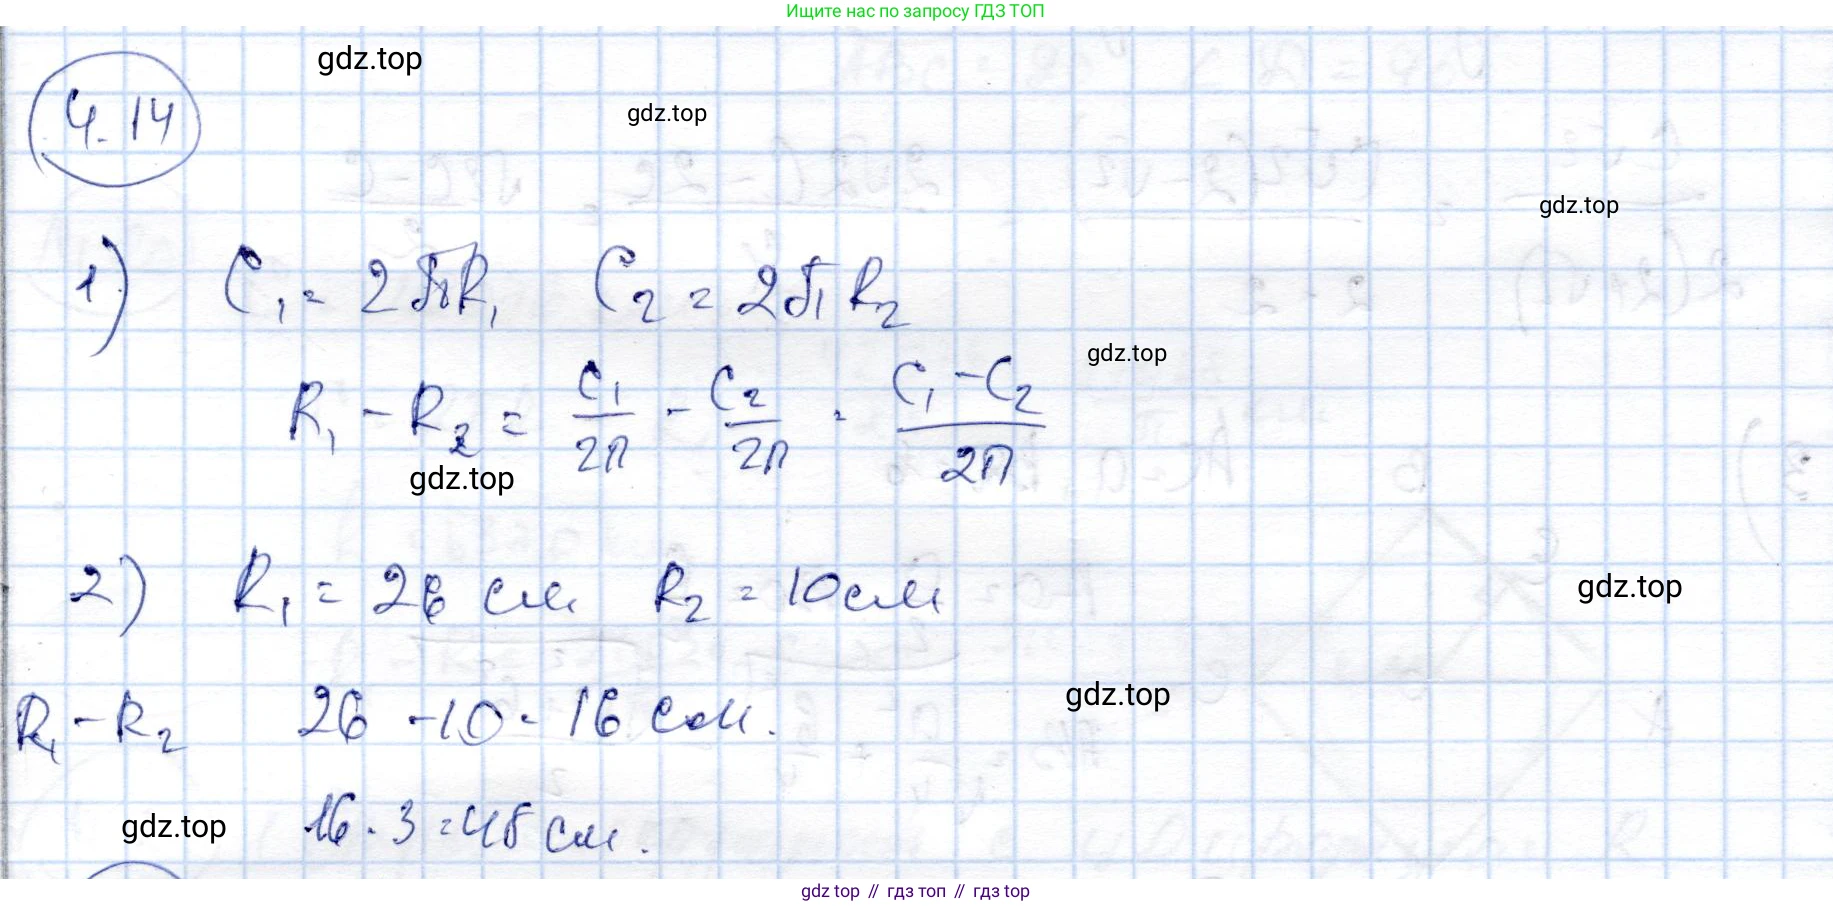 Ищите нас по запросу ГДЗ ТОП
gdz.top
4.14
gdz.top
gdz.top
1) C₁ = 2πR₁ C₂ = 2πR₂
gdz.top
R₁ - R₂ = C₁/2π - C₂/2π = (C₁ - C₂)/2π
gdz.top
2) R₁ = 26 см R₂ = 10 см
gdz.top
R₁ - R₂ 26 - 10 = 16 см.
gdz.top
gdz.top 16 · 3 = 48 см.
gdz top // гдз топ // гдз top